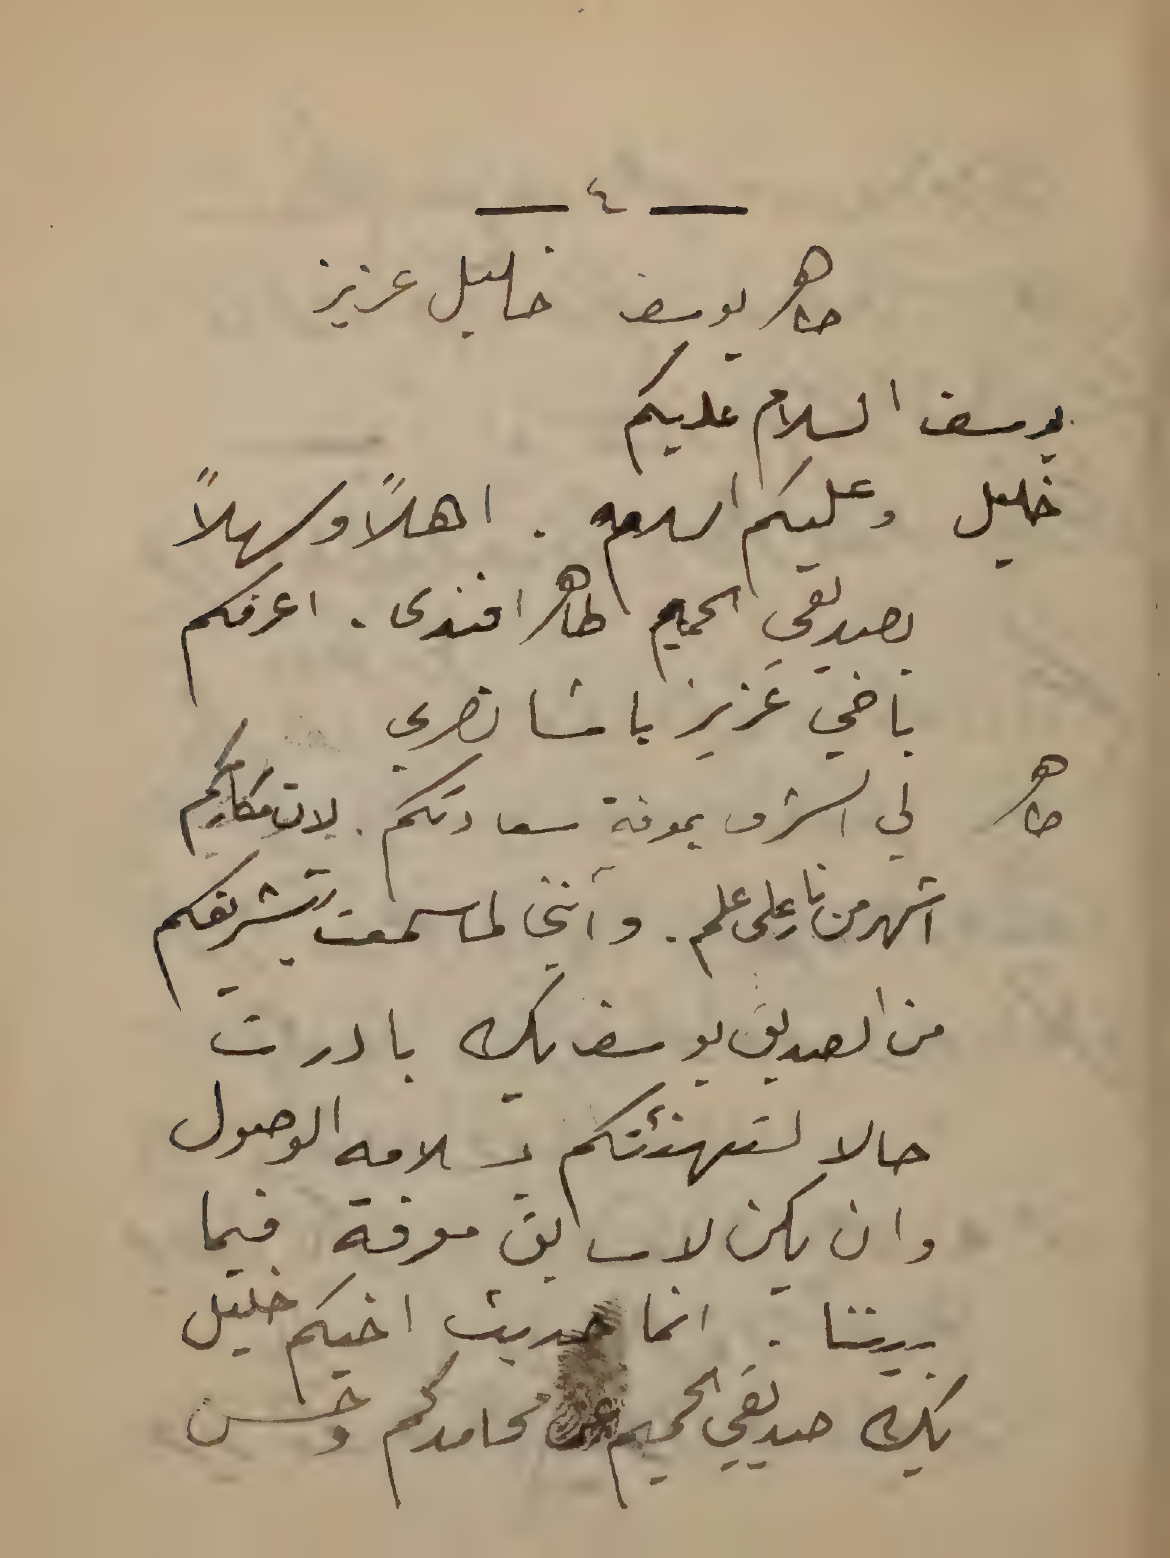 — ٤ —
طاهر يوسف خليل عزيز
يوسف السلام عليكم
خليل وعليكم السلام . اهلاً وسهلاً
بصديقي الحميم طاهر افندى . اعرفكم
بأخي عزيز باشا نصري
طاهر لي الشرف بمعرفة سعادتكم . لان مكارمكم
اشهر من نار على علم . وأنني لما سمعت بتشريفكم
من الصديق يوسف بك بادرت
حالا لتهنئتكم بسلامه الوصول
وان يكن لا سابق معرفة فيما
بيننا . انما حديث اخيكم خليل
بك صديقي الحميم عن محامدكم وحسن